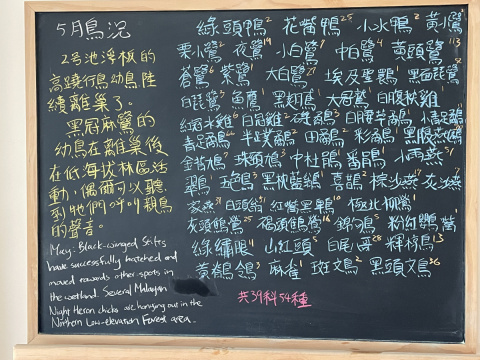 5月鳥況
2号池浮板的
高蹺行鳥幼鳥陸
續離巢了。
黑冠麻鷺的
幼鳥在離巢後
在低海拔林區活
動,偶爾可以聽
到牠們呼叫親鳥
的聲音。
May: Black-winged Stilts
have successfully hatched and
moved towards other spots in
the wetland. Several Malayan
Night Heron chicks are hanging out in the
Northern Low-elevation Forest area.
綠頭鴨 花嘴鴨 小水鴨 黃小鷺
栗小鷺 夜鷺 小白鷺 中白鷺 黃頭鷺
蒼鷺 紫鷺 大白鷺 埃及聖䴉 黑面琵鷺
白琵鷺 魚鷹 黑翅鳶 大冠鷲 白腹秧雞
紅冠水雞 白冠雞
青足鷸 半蹼鷸 田鷸 彩鷸 黑腹燕鷗
金背鳩 珠頸鳩 中杜鵑 番鵑 小雨燕
五色鳥 黑枕藍鶲 喜鵲 棕沙燕 灰沙燕
家燕 白頭翁 紅嘴黑鵯 極北柳鶯
灰頭鷦鶯 褐頭鷦鶯 錦鴝 粉紅鸚嘴
綠繡眼 山紅頭 白尾八哥 輝椋鳥
黃鶺鴒 麻雀 斑文鳥 黑頭文鳥
共39科54種